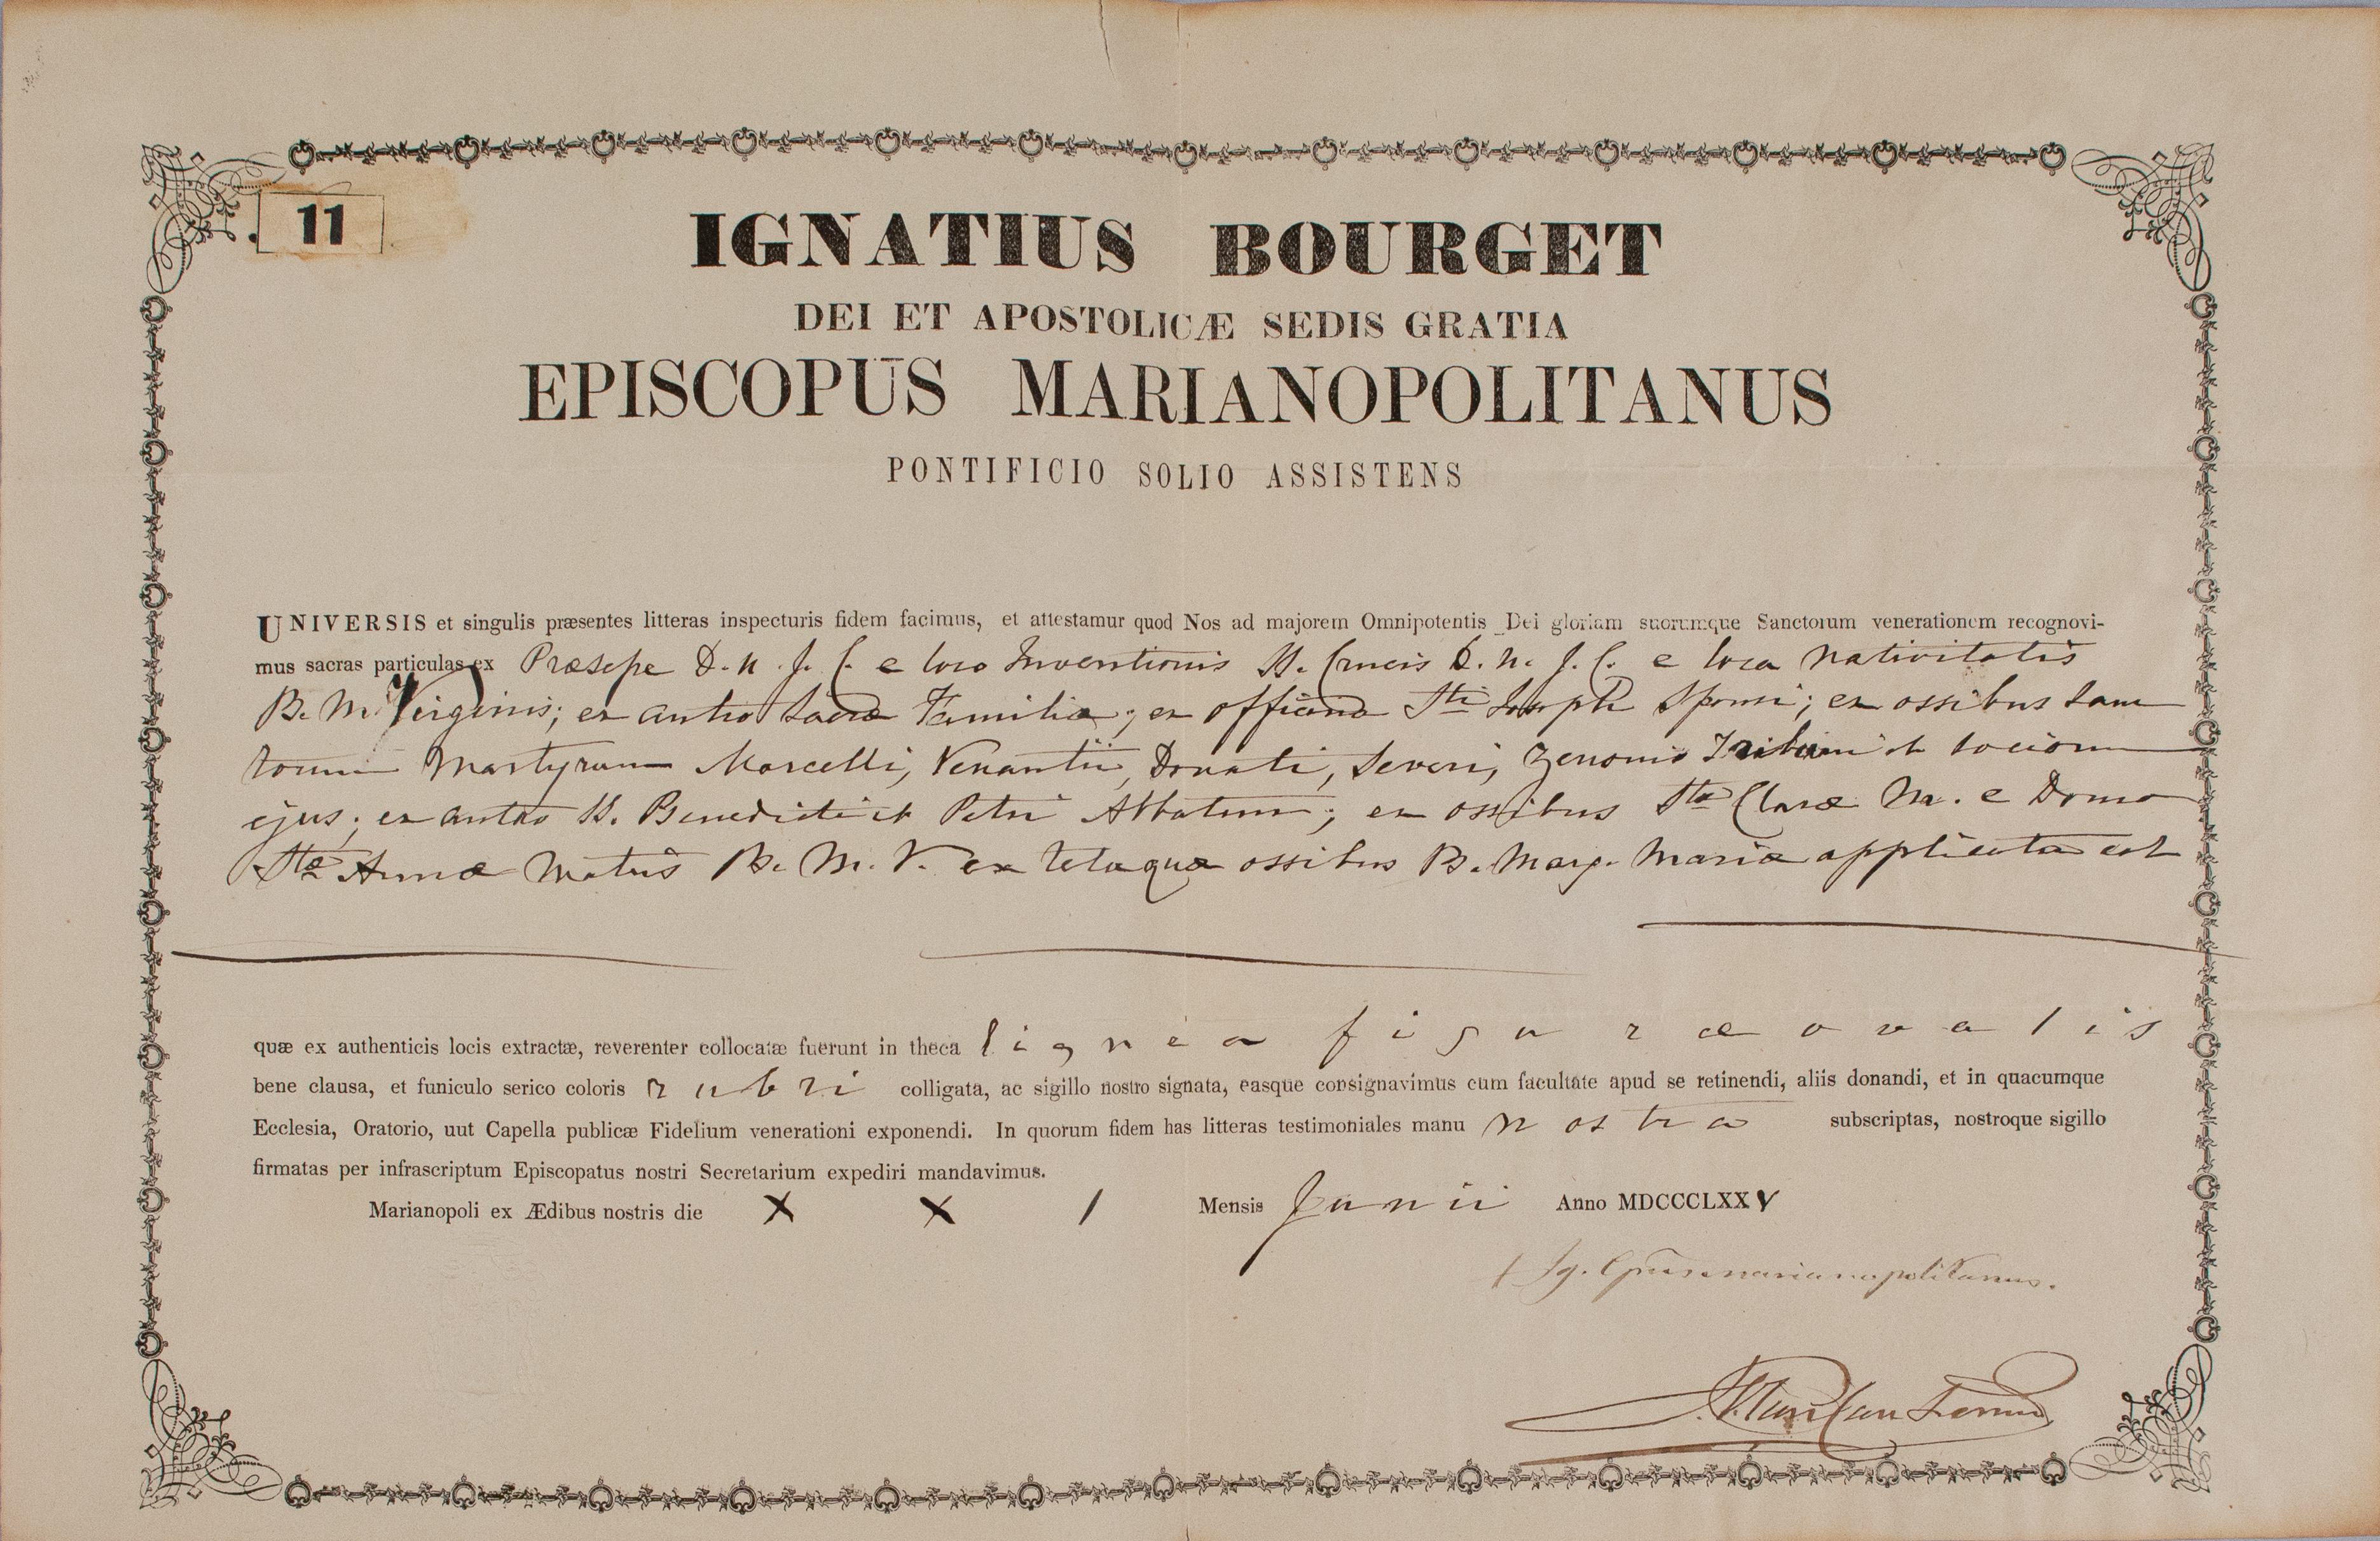 11
IGNATIUS BOURGET
DEI ET APOSTOLICÆ SEDIS GRATIA
EPISCOPUS MARIANOPOLITANUS
PONTIFICIO SOLIO ASSISTENS
UNIVERSIS et singulis præsentes litteras inspecturis fidem facimus, et attestamur quod Nos ad majorem Omnipotentis Dei gloriam suorumque Sanctorum venerationem recognovi-
mus sacras particulas ex Præsepe D. N. J. C. e loco Inventionis S. Crucis D. N. J. C. e loco Nativitatis
B. M. Virginis; ex antro Sacræ Familiæ; ex officina Sti Joseph Sponsi; ex ossibus Sanc
torum Martyrum Marcelli, Venantii, Donati, Severi, Zenonis Tribuni et sociorum
ejus; ex antro S. Benedicti et Petri Abbatum; ex ossibus Stæ Claræ M. e Domo
Stæ Annæ Matris B. M. V. ex tela quæ ossibus B. Marg. Mariæ applicata est
quæ ex authenticis locis extractæ, reverenter collocatæ fuerunt in theca lignea figuræ ovalis
bene clausa, et funiculo serico coloris rubri colligata, ac sigillo nostro signata, easque consignavimus cum facultate apud se retinendi, aliis donandi, et in quacumque
Ecclesia, Oratorio, uut Capella publicæ Fidelium venerationi exponendi. In quorum fidem has litteras testimoniales manu nostra subscriptas, nostroque sigillo
firmatas per infrascriptum Episcopatus nostri Secretarium expediri mandavimus.
Marianopoli ex Ædibus nostris die X X I Mensis Junii Anno MDCCCLXXV
† Ig. Epus marianopolitanus.